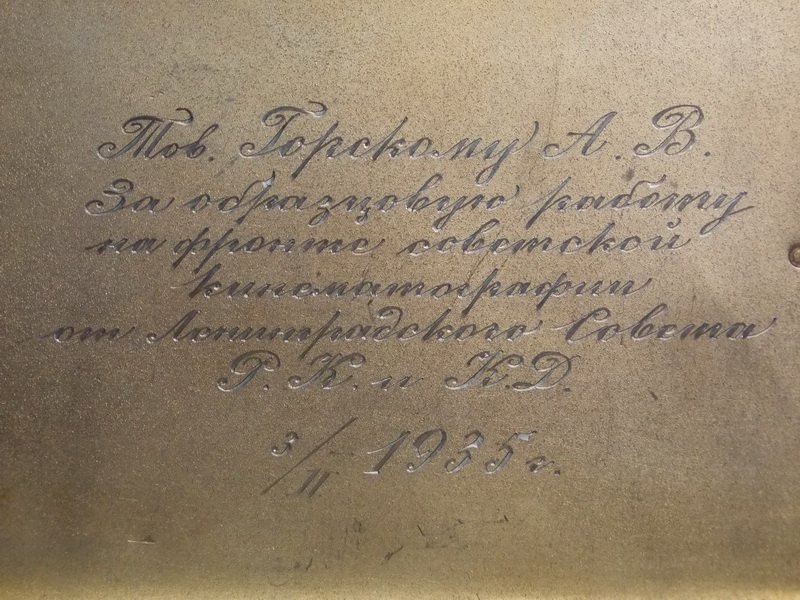 Тов. Горскому А. В.
За образцовую работу
на фронте советской
кинематографии
от Ленинградского Совета
Р. К. и К. Д.
3/II 1935 г.